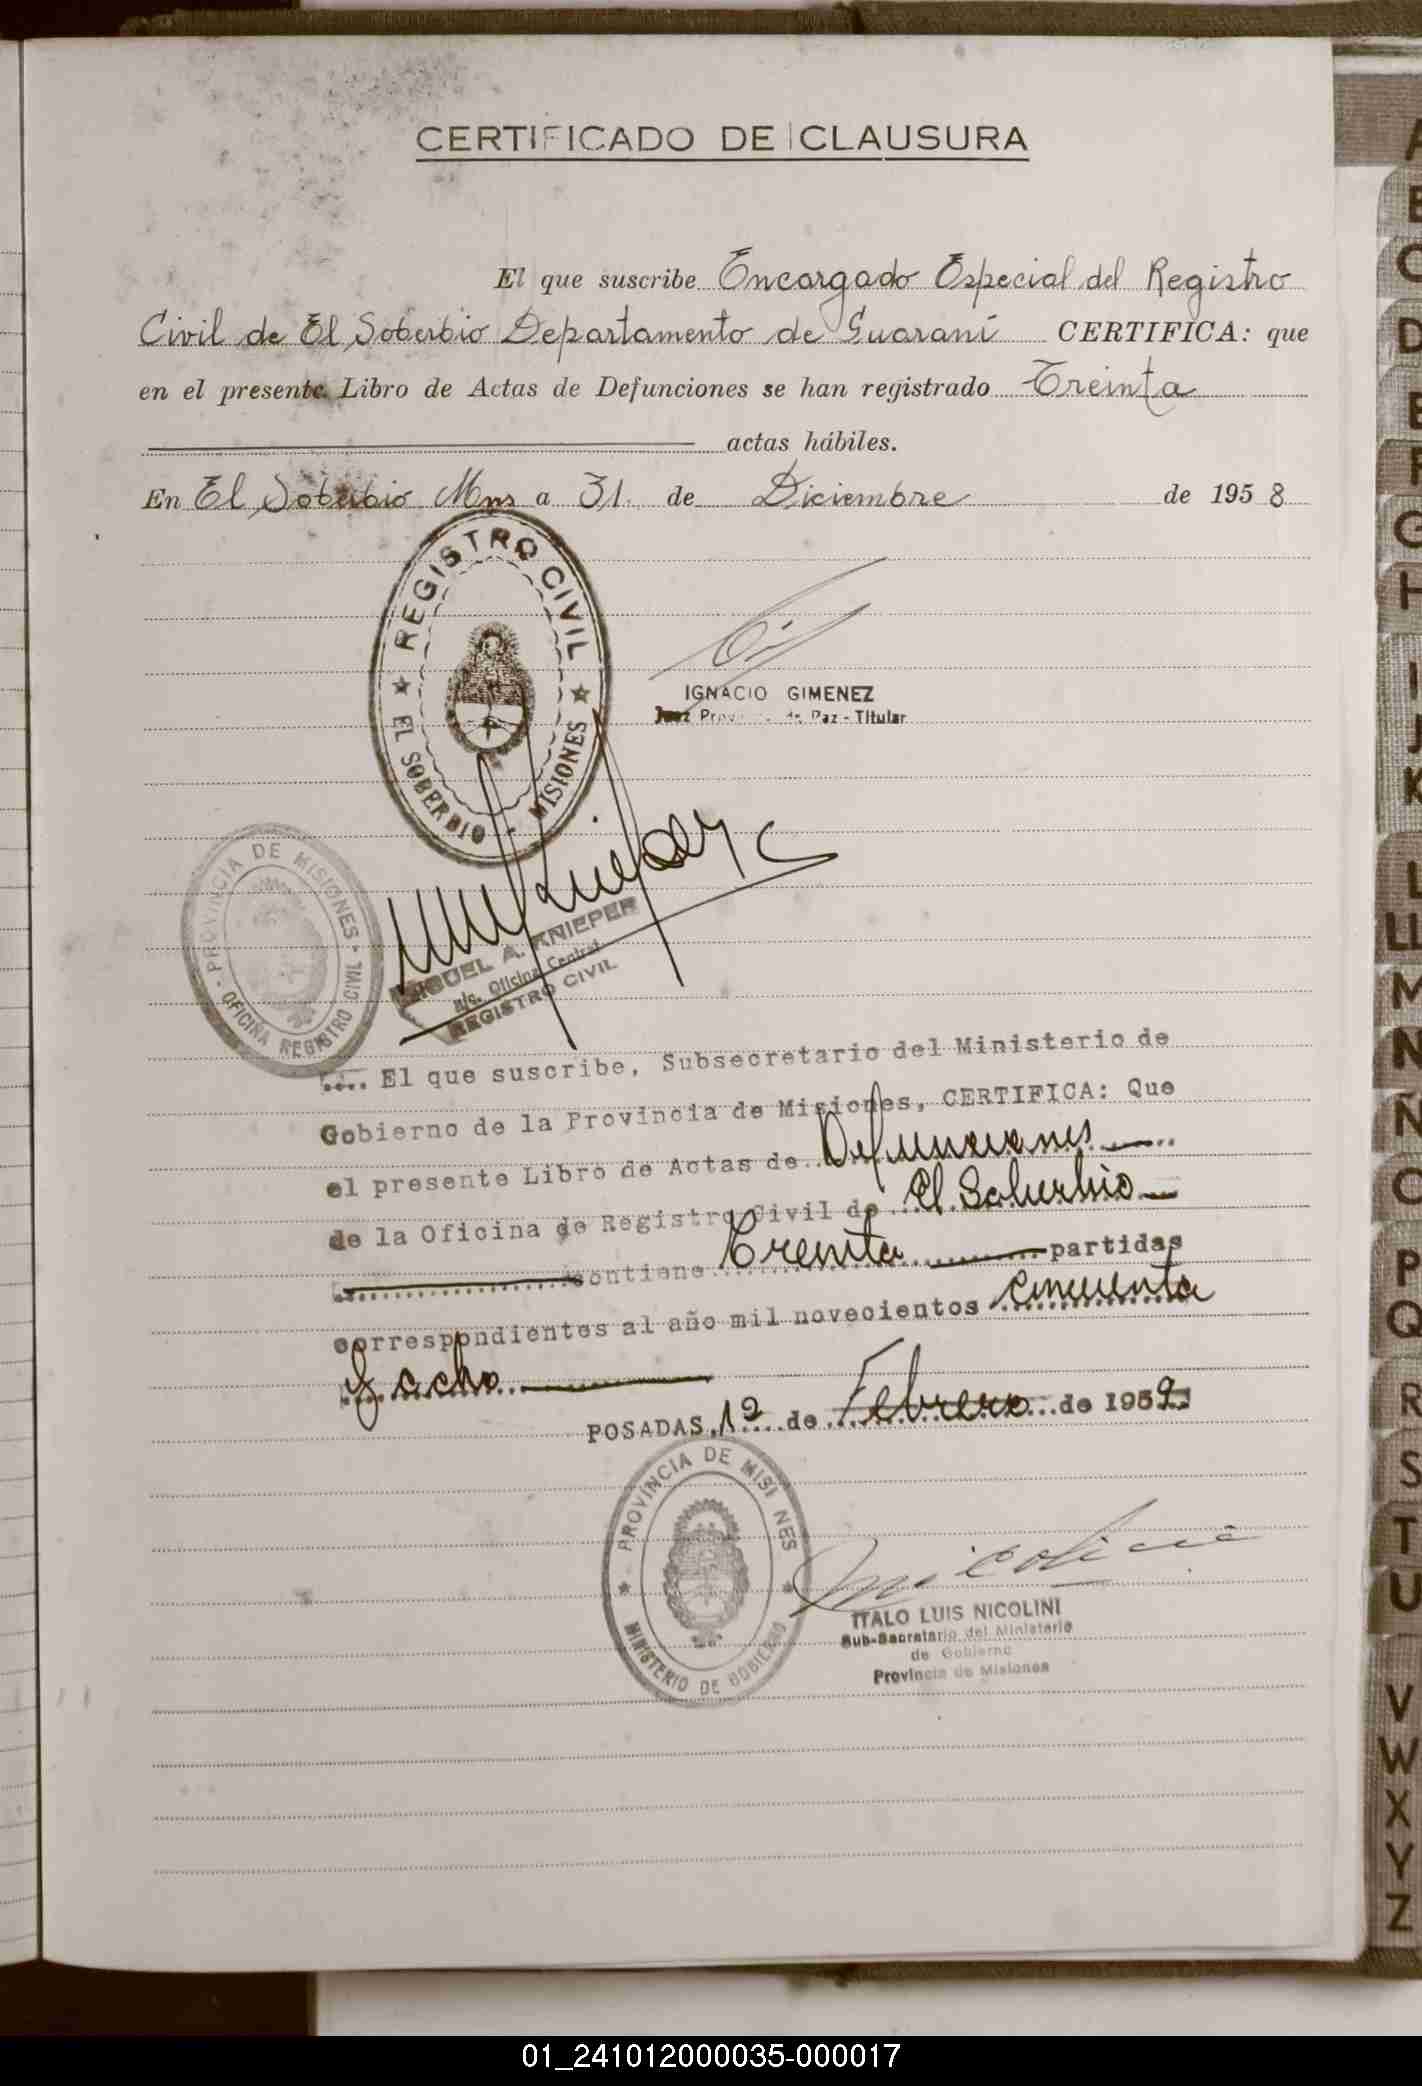 CERTIFICADO DE CLAUSURA
El que suscribe Encargado Especial del Registro
Civil de El Soberbio Departamento de Guaraní CERTIFICA: que
en el presente Libro de Actas de Defunciones se han registrado Treinta
actas hábiles.
En El Soberbio Mns a 31. de Diciembre de 1958
REGISTRO CIVIL
EL SOBERBIO - MISIONES
IGNACIO GIMENEZ
Juez de Paz - Titular
PROVINCIA DE MISIONES
OFICINA REGISTRO CIVIL
MIGUEL A. KNIEPER
a/c. Oficina Central
REGISTRO CIVIL
El que suscribe, Subsecretario del Ministerio de
Gobierno de la Provincia de Misiones, CERTIFICA: Que
el presente Libro de Actas de Defunciones
de la Oficina de Registro Civil de El Soberbio
contiene Treinta partidas
correspondientes al año mil novecientos cincuenta
y ocho
POSADAS, 12 de Febrero de 1959
PROVINCIA DE MISI NES
MINISTERIO DE GOBIERNO
Nicolini
ITALO LUIS NICOLINI
Sub-Secretario del Ministerio
de Gobierno
Provincia de Misiones
A
B
C
D
E
F
G
H
I
J
K
L
LL
M
N
Ñ
O
P
Q
R
S
T
U
V
W
X
Y
Z
01_241012000035-000017